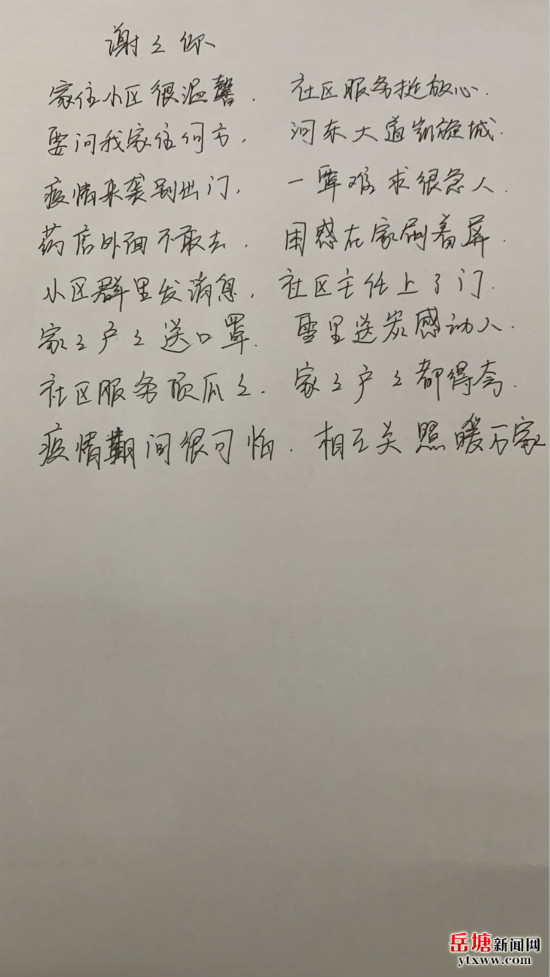 谢々你
家住小区很温馨. 社区服务挺放心.
要问我家住何方, 河东大道凯旋城.
疫情来袭别出门, 一罩难求很急人.
药店外面不敢去. 困惑在家刷着屏.
小区群里发消息, 社区主任上了门.
家々户々送口罩. 雪里送炭感动人.
社区服务顶瓜々. 家々户々都得夸.
疫情期间很可怕. 相互关照暖万家
岳塘新闻网
ytxww.com